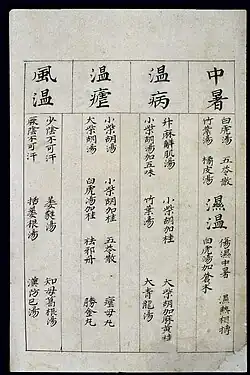 中暑
白虎湯 五苓散
竹葉湯 橘皮湯
濕温
傷濕中暑 濕熱相摶
白虎湯加蒼朮
温病
升麻解肌湯 小柴胡加桂
小柴胡湯加五味 大柴胡加麻黄桂
竹葉湯 大青龍湯
温瘧
小柴胡湯 小柴胡加桂 瘧母丸
大柴胡湯 五苓散
白虎湯加桂 祛邪丹 勝金丸
風温
少陰不可汗 葳蕤湯 知母葛根湯
厥陰不可汗 栝蔞根湯 漢防已湯